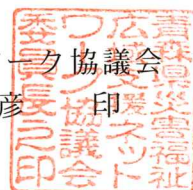 ーク協議会
彦 印
青森県災害福祉
広域支援ネット
ワーク協議会
委員長之印